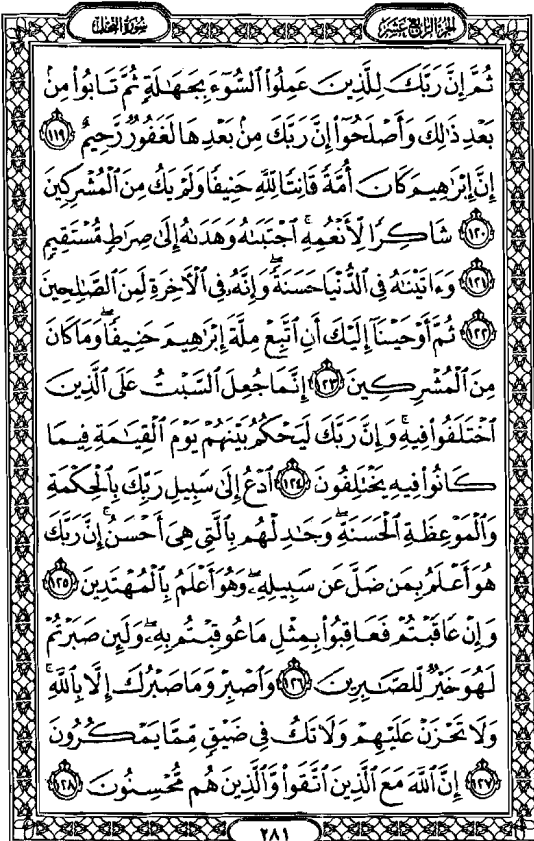 سورة النحل
الجزء الرابع عشر
ثُمَّ إِنَّ رَبَّكَ لِلَّذِينَ عَمِلُوا۟ ٱلسُّوٓءَ بِجَهَٰلَةٍ ثُمَّ تَابُوا۟ مِنۢ
بَعْدِ ذَٰلِكَ وَأَصْلَحُوٓا۟ إِنَّ رَبَّكَ مِنۢ بَعْدِهَا لَغَفُورٌ رَّحِيمٌ ١١٩
إِنَّ إِبْرَٰهِيمَ كَانَ أُمَّةً قَانِتًا لِّلَّهِ حَنِيفًا وَلَمْ يَكُ مِنَ ٱلْمُشْرِكِينَ
١٢٠ شَاكِرًا لِّأَنْعُمِهِ ۚ ٱجْتَبَىٰهُ وَهَدَىٰهُ إِلَىٰ صِرَٰطٍ مُّسْتَقِيمٍ
١٢١ وَءَاتَيْنَٰهُ فِى ٱلدُّنْيَا حَسَنَةً ۖ وَإِنَّهُۥ فِى ٱلْءَاخِرَةِ لَمِنَ ٱلصَّٰلِحِينَ
١٢٢ ثُمَّ أَوْحَيْنَآ إِلَيْكَ أَنِ ٱتَّبِعْ مِلَّةَ إِبْرَٰهِيمَ حَنِيفًا ۖ وَمَا كَانَ
مِنَ ٱلْمُشْرِكِينَ ١٢٣ إِنَّمَا جُعِلَ ٱلسَّبْتُ عَلَى ٱلَّذِينَ
ٱخْتَلَفُوا۟ فِيهِ ۚ وَإِنَّ رَبَّكَ لَيَحْكُمُ بَيْنَهُمْ يَوْمَ ٱلْقِيَٰمَةِ فِيمَا
كَانُوا۟ فِيهِ يَخْتَلِفُونَ ١٢٤ ٱدْعُ إِلَىٰ سَبِيلِ رَبِّكَ بِٱلْحِكْمَةِ
وَٱلْمَوْعِظَةِ ٱلْحَسَنَةِ ۖ وَجَٰدِلْهُم بِٱلَّتِى هِىَ أَحْسَنُ ۚ إِنَّ رَبَّكَ
هُوَ أَعْلَمُ بِمَن ضَلَّ عَن سَبِيلِهِۦ ۖ وَهُوَ أَعْلَمُ بِٱلْمُهْتَدِينَ ١٢٥
وَإِنْ عَاقَبْتُمْ فَعَاقِبُوا۟ بِمِثْلِ مَا عُوقِبْتُم بِهِۦ ۖ وَلَئِن صَبَرْتُمْ
لَهُوَ خَيْرٌ لِّلصَّٰبِرِينَ ١٢٦ وَٱصْبِرْ وَمَا صَبْرُكَ إِلَّا بِٱللَّهِ ۚ
وَلَا تَحْزَنْ عَلَيْهِمْ وَلَا تَكُ فِى ضَيْقٍ مِّمَّا يَمْكُرُونَ
١٢٧ إِنَّ ٱللَّهَ مَعَ ٱلَّذِينَ ٱتَّقَوا۟ وَّٱلَّذِينَ هُم مُّحْسِنُونَ ١٢٨
٢٨١